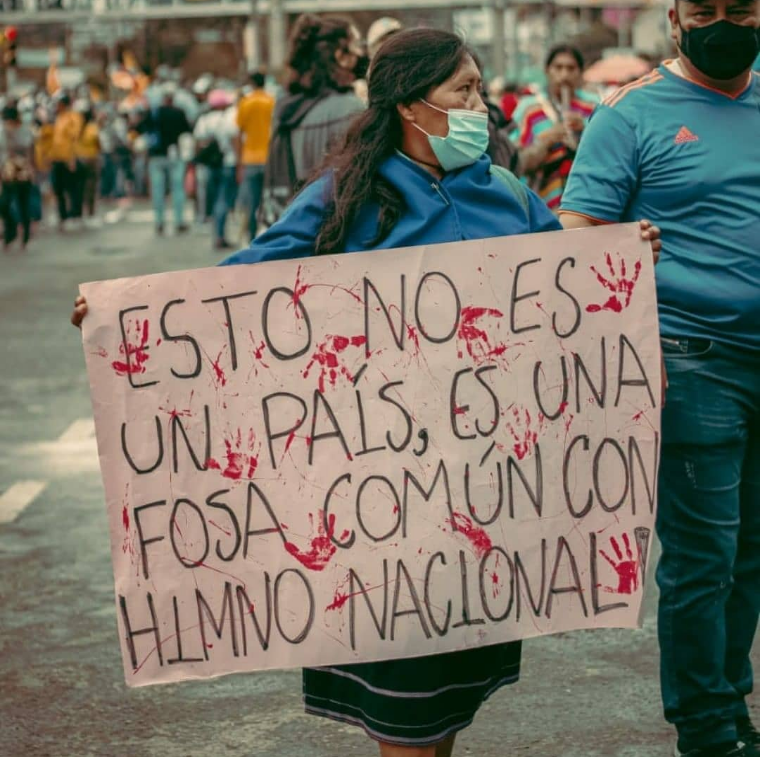 ESTO NO ES
UN PAÍS, ES UNA
FOSA COMÚN CON
HIMNO NACIONAL!